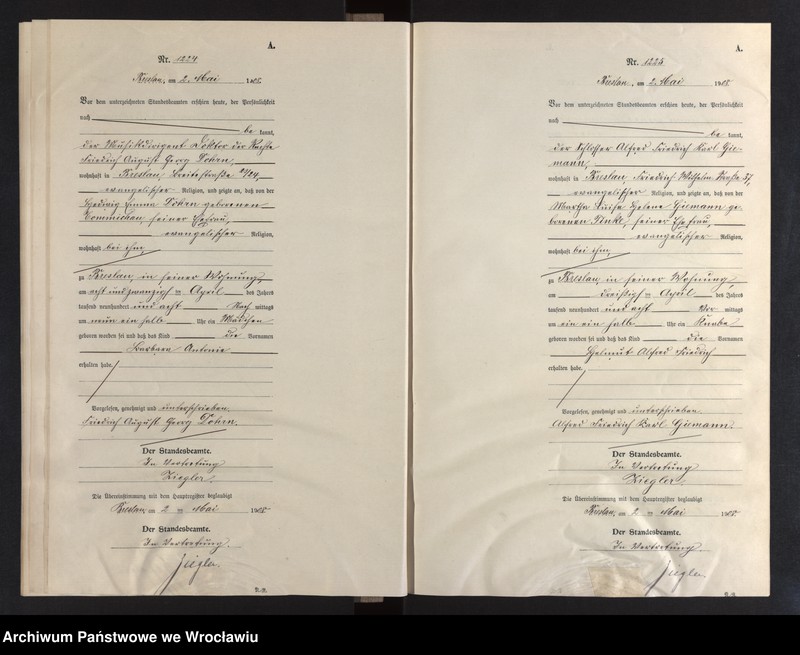 A.
Nr. 1224
Breslau, am 2. Mai 1908.
Vor dem unterzeichneten Standesbeamten erschien heute, der Persönlichkeit
nach
be kannt,
der Musikdirigent Doktor der Rechte
Friedrich August Georg Dohrn,
wohnhaft in Breslau, Breitestraße 23/24,
evangelischer Religion, und zeigte an, daß von der
Hedwig Emma Dohrn geborenen
seiner Ehefrau,
evangelischer Religion,
wohnhaft bei ihm,
zu Breslau, in seiner Wohnung,
am acht und zwanzigsten April des Jahres
tausend neunhundert und acht Nach mittags
um neun ein halb Uhr ein Mädchen
geboren worden sei und daß das Kind die Vornamen
Barbara Antonie
erhalten habe.
Vorgelesen, genehmigt und unterschrieben.
Friedrich August Georg Dohrn.
Der Standesbeamte.
In Vertretung
Ziegler.
Die Übereinstimmung mit dem Hauptregister beglaubigt
Breslau, am 2 ten Mai 1908
Der Standesbeamte.
In Vertretung.
Ziegler.
A.
Nr. 1225
Breslau, am 2. Mai 1908.
Vor dem unterzeichneten Standesbeamten erschien heute, der Persönlichkeit
nach
be kannt,
der Schlosser Alfred Friedrich Karl Gie-
mann,
wohnhaft in Breslau, Friedrich Wilhelm Straße 37,
evangelischer Religion, und zeigte an, daß von der
Martha Luise Helene Giemann ge-
borenen seiner Ehefrau,
evangelischer Religion,
wohnhaft bei ihm,
zu Breslau, in seiner Wohnung,
am dreißigsten April des Jahres
tausend neunhundert und acht Vor mittags
um ein halb Uhr ein Knabe
geboren worden sei und daß das Kind die Vornamen
Helmut Alfred Friedrich
erhalten habe.
Vorgelesen, genehmigt und unterschrieben.
Alfred Friedrich Karl Giemann.
Der Standesbeamte.
In Vertretung
Ziegler.
Die Übereinstimmung mit dem Hauptregister beglaubigt
Breslau, am 2 ten Mai 1908
Der Standesbeamte.
In Vertretung.
Ziegler.
Archiwum Państwowe we Wrocławiu